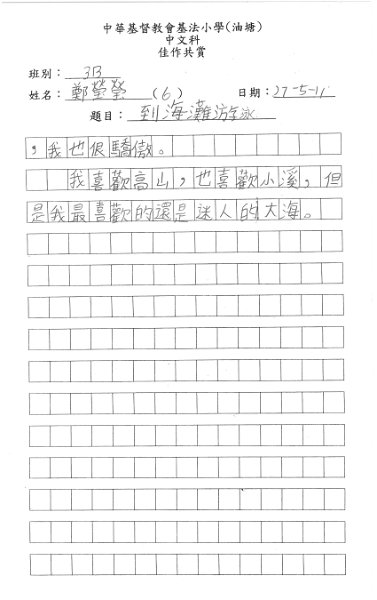 中華基督教會基法小學(油塘)
中文科
佳作共賞
班別：3B
姓名：鄭瑩瑩(6) 日期：27-5-11
題目：到海灘游泳
，我也很驕傲。
我喜歡高山，也喜歡小溪，但
是我最喜歡的還是迷人的大海。